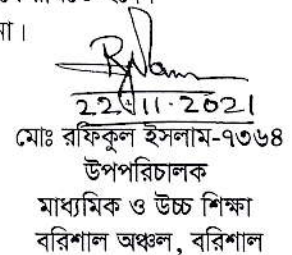 না।
22.11.2021
মোঃ রফিকুল ইসলাম-৭৩৬৪
উপপরিচালক
মাধ্যমিক ও উচ্চ শিক্ষা
বরিশাল অঞ্চল, বরিশাল